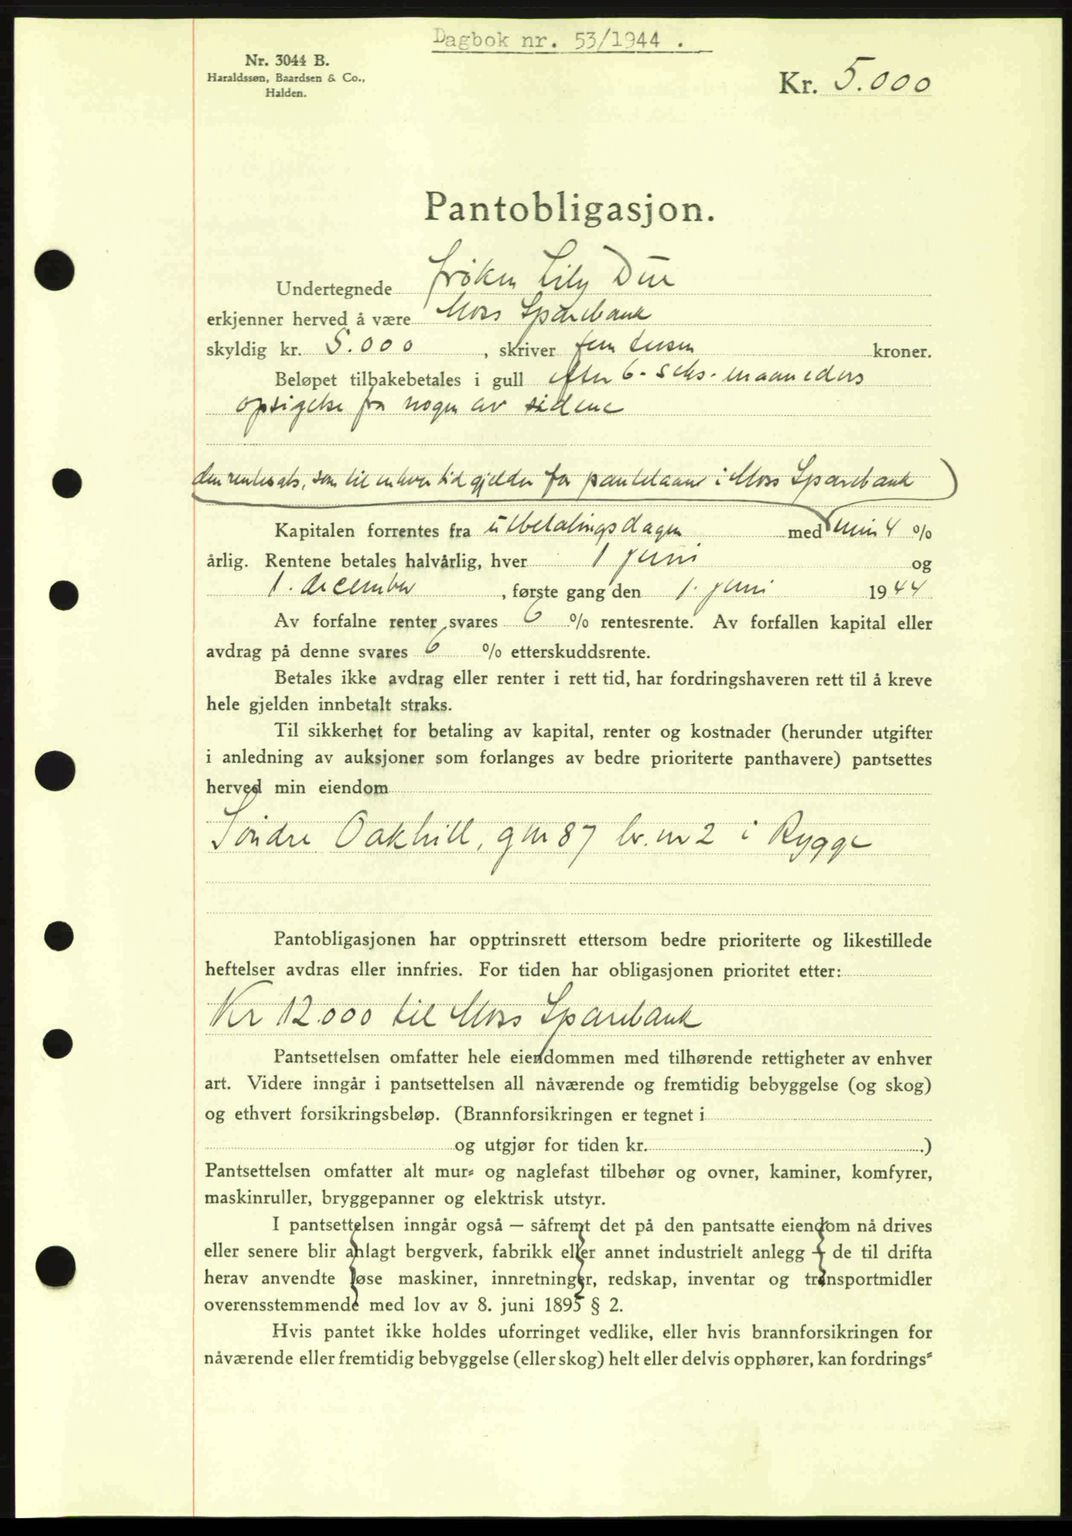 Dagbok nr. 53/1944 .
Nr. 3044 B.
Haraldssøn, Baardsen & Co.,
Halden.
Kr. 5.000
Pantobligasjon.
Undertegnede frøken Lily Due
erkjenner herved å være Moss Sparebank
skyldig kr. 5.000 , skriver fem tusen kroner.
Beløpet tilbakebetales i gull efter 6 - seks - maaneders
opsigelse fra nogen av sidene
den rentesats, som til enhver tid gjelder for pantelaane i Moss Sparebank
Kapitalen forrentes fra utbetalingsdagen med min 4 %
årlig. Rentene betales halvårlig, hver 1 juni og
1. december , første gang den 1. juni 1944
Av forfalne renter svares 6 % rentesrente. Av forfallen kapital eller
avdrag på denne svares 6 % etterskuddsrente.
Betales ikke avdrag eller renter i rett tid, har fordringshaveren rett til å kreve
hele gjelden innbetalt straks.
Til sikkerhet for betaling av kapital, renter og kostnader (herunder utgifter
i anledning av auksjoner som forlanges av bedre prioriterte panthavere) pantsettes
herved min eiendom
Söndre Oakhill, gnr 87 br. nr 2 i Rygge
Pantobligasjonen har opptrinsrett ettersom bedre prioriterte og likestillede
heftelser avdras eller innfries. For tiden har obligasjonen prioritet etter:
Kr 12.000 til Moss Sparebank
Pantsettelsen omfatter hele eiendommen med tilhørende rettigheter av enhver
art. Videre inngår i pantsettelsen all nåværende og fremtidig bebyggelse (og skog)
og ethvert forsikringsbeløp. (Brannforsikringen er tegnet i
og utgjør for tiden kr. .)
Pantsettelsen omfatter alt mur- og naglefast tilbehør og ovner, kaminer, komfyrer,
maskinruller, bryggepanner og elektrisk utstyr.
I pantsettelsen inngår også — såfremt det på den pantsatte eiendom nå drives
eller senere blir anlagt bergverk, fabrikk eller annet industrielt anlegg — de til drifta
herav anvendte løse maskiner, innretninger, redskap, inventar og transportmidler
overensstemmende med lov av 8. juni 1895 § 2.
Hvis pantet ikke holdes uforringet vedlike, eller hvis brannforsikringen for
nåværende eller fremtidig bebyggelse (eller skog) helt eller delvis opphører, kan fordrings-